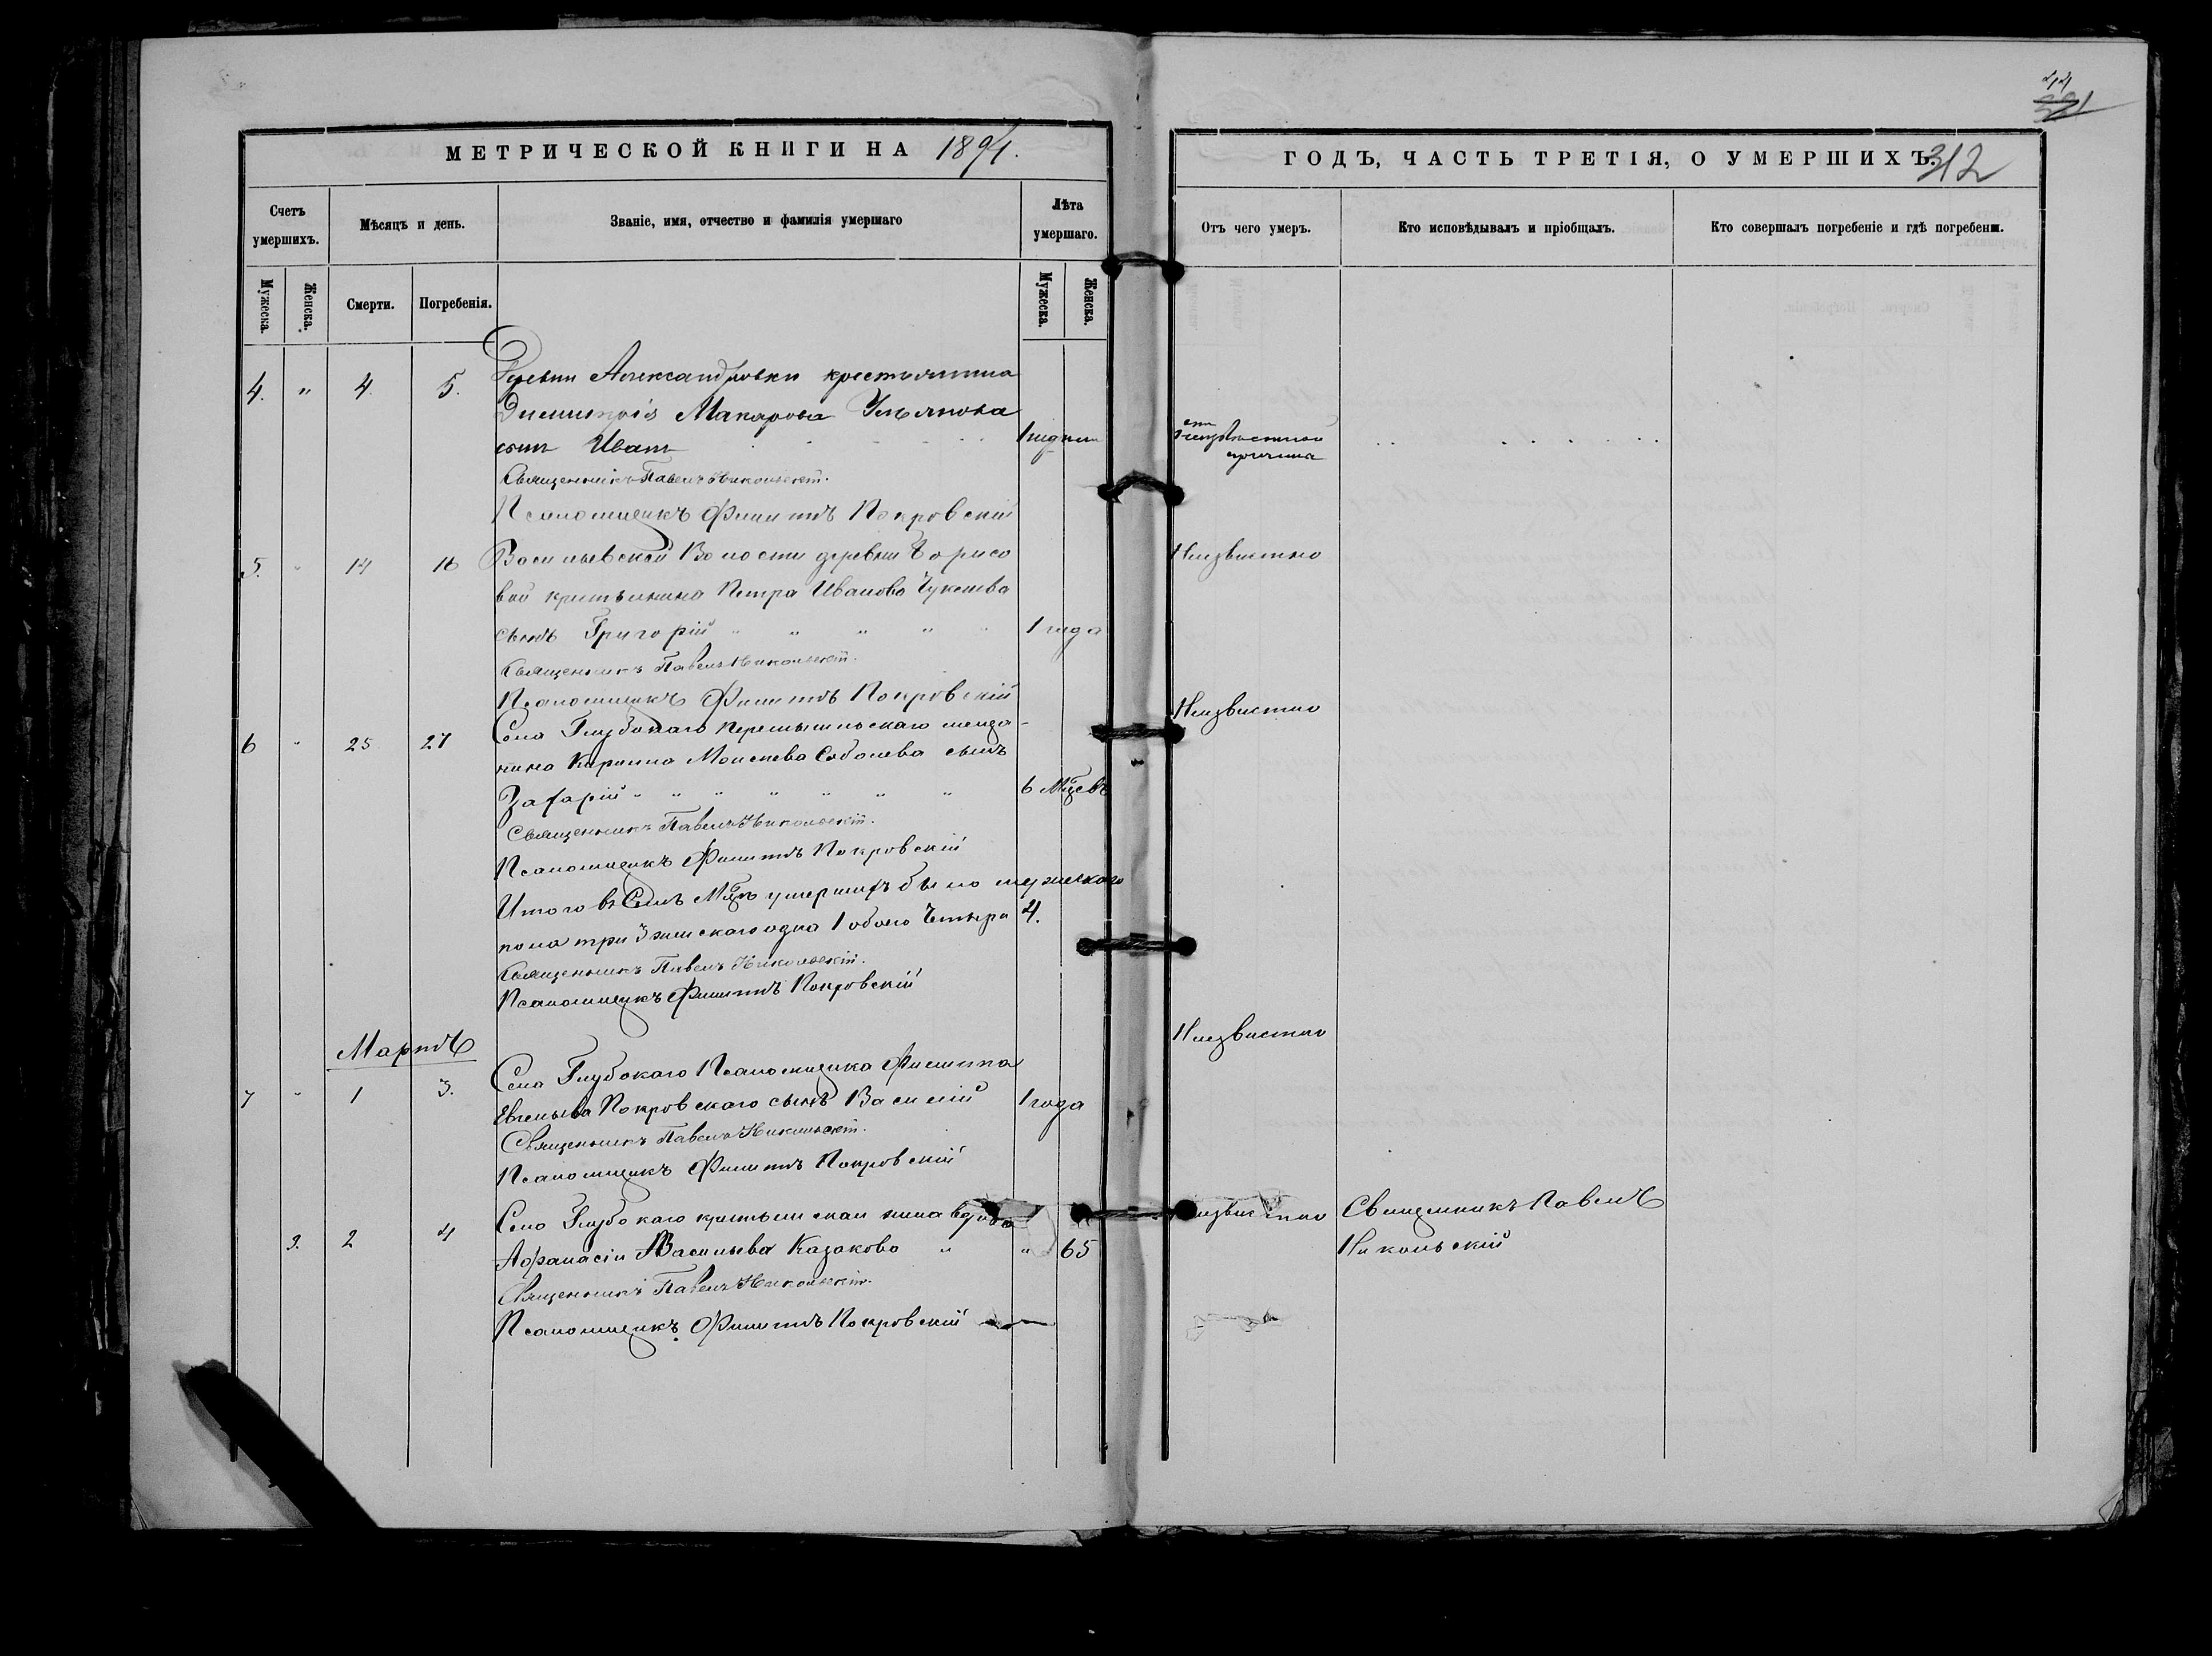 44
МЕТРИЧЕСКОЙ КНИГИ НА 1894.
ГОДЪ, ЧАСТЬ ТРЕТІЯ, О УМЕРШИХЪ. 312
Счетъ умершихъ.
Мѣсяцъ и день.
Званіе, имя, отчество и фамилія умершаго
Лѣта умершаго.
Отъ чего умеръ.
Кто исповѣдывалъ и пріобщалъ.
Кто совершалъ погребеніе и гдѣ погребены.
Мужеска.
Женска.
Смерти.
Погребенія.
Мужеска.
Женска.
4. " 4. 5. Деревни Александровки крестьянина
Димитрія Макарова
сынъ Иванъ
Священникъ Павелъ Никольскій.
Псаломщикъ Филиппъ Покровскій
5. " 14 16 Васильевской Волости деревни Борисо
вой крестьянина Петра Иванова
сынъ Григорій " " " " " 1 года
Неизвестно
Священникъ Павелъ Никольскій.
Псаломщикъ Филиппъ Покровскій
6 " 25 27 Села Глубокаго Перемышльскаго меща-
нина Кирилла Моисеева Соболева сынъ
Захарій " " " " " " " 6 Мцевъ
Неизвестно
Священникъ Павелъ Никольскій.
Псаломщикъ Филиппъ Покровскій
Итого въ Семъ Мцѣ умершихъ было мужескаго
пола три 3 женскаго одна 1 обоего Четыре 4.
Священникъ Павелъ Никольскій.
Псаломщикъ Филиппъ Покровскій
Мартъ
7 " 1 3. Села Глубокаго Псаломщика Филиппа
Евгеньева Покровскаго сынъ Василій 1 года
Неизвестно
Священникъ Павелъ Никольскій.
Псаломщикъ Филиппъ Покровскій
3. 2 4 Села Глубокаго крестьянская вдова
Афанасія Васильева Казакова " " 65
Неизвестно
Священникъ Павелъ
Никольскій
Священникъ Павелъ Никольскій.
Псаломщикъ Филиппъ Покровскій